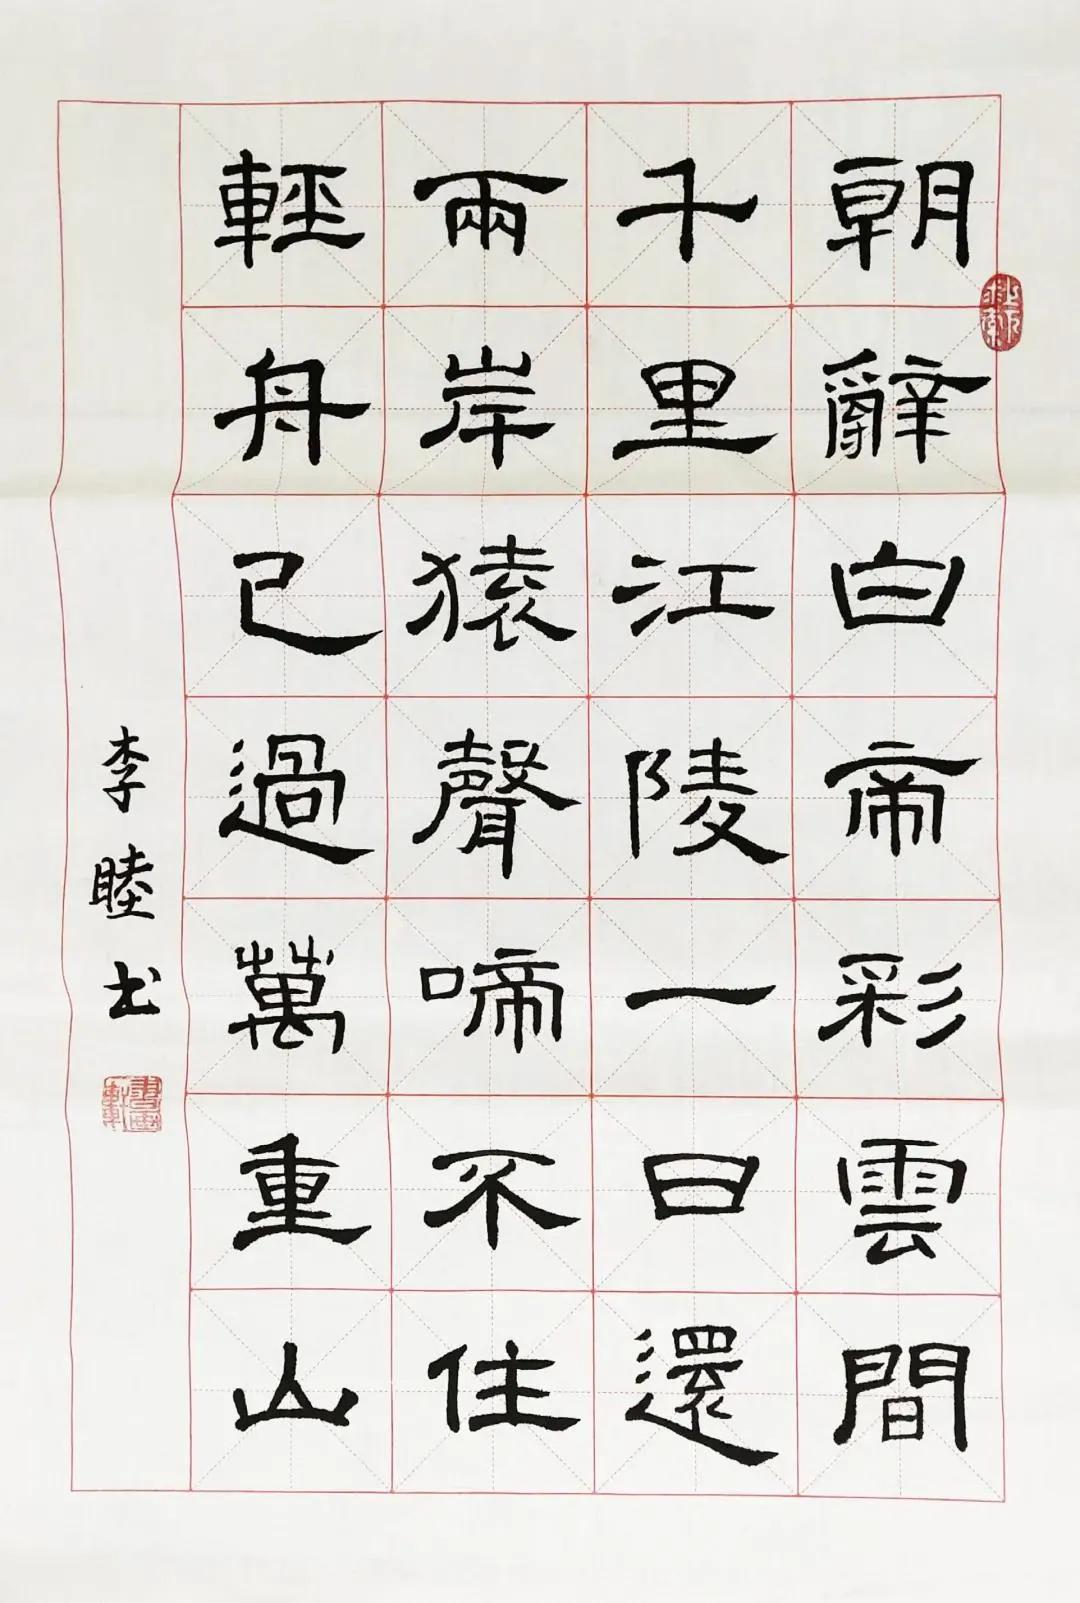 朝辭白帝彩雲間
千里江陵一日還
兩岸猿聲啼不住
輕舟已過萬重山
李睦书
書画軒